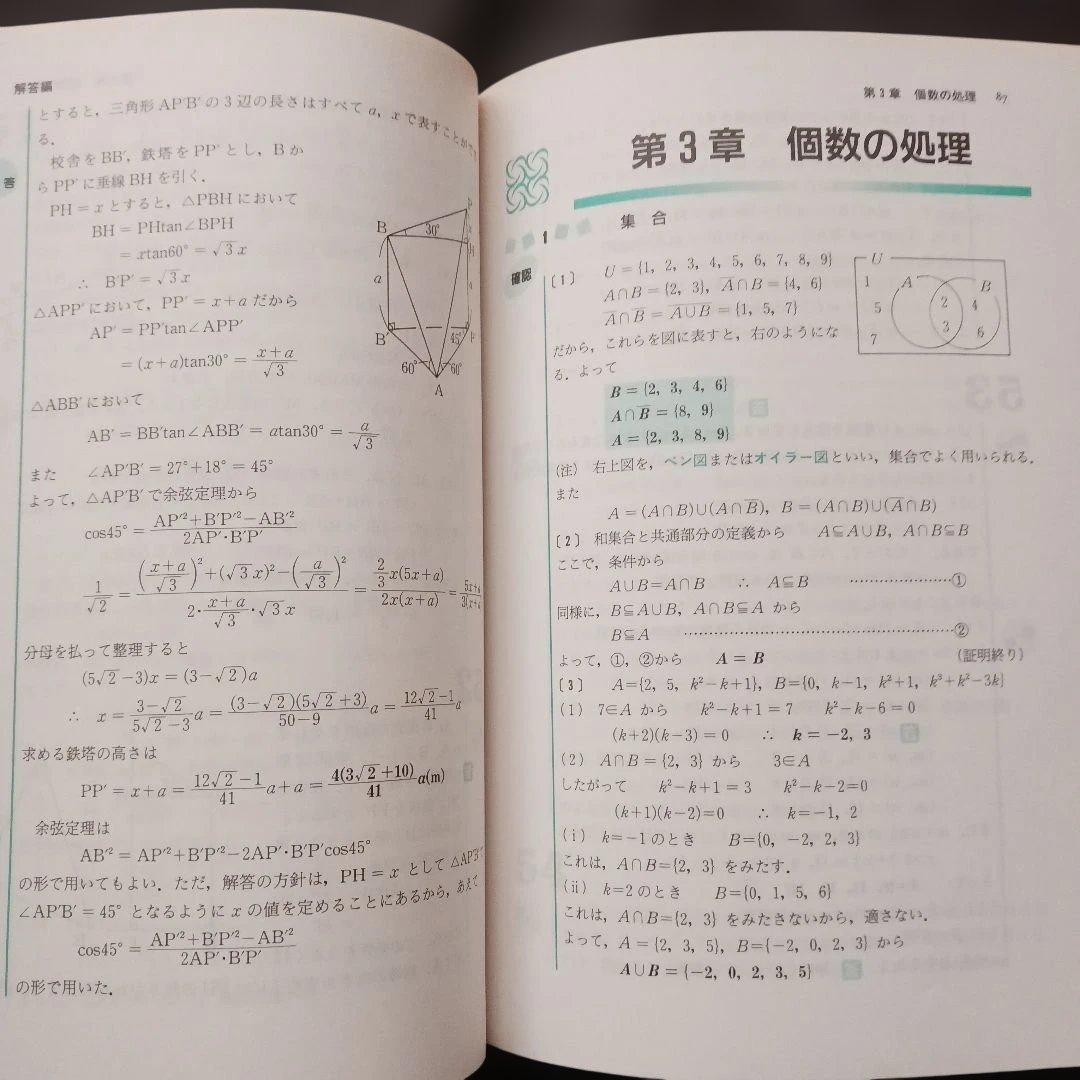 解答編
とすると，三角形AP'B'の3辺の長さはすべてa，xで表すことができ
る．
答
校舎をBB'，鉄塔をPP'とし，Bか
らPP'に垂線BHを引く．
PH＝xとすると，△PBHにおいて
BH＝PHtan∠BPH
＝xtan60°＝√3x
∴ B'P'＝√3x
△APP'において，PP'＝x＋aだから
AP'＝PP'tan∠APP'
＝(x＋a)tan30°＝(x＋a)/√3
△ABB'において
AB'＝BB'tan∠ABB'＝atan30°＝a/√3
また ∠AP'B'＝27°＋18°＝45°
よって，△AP'B'で余弦定理から
cos45°＝(AP'²＋B'P'²－AB'²)/(2AP'・B'P')
1/√2＝(((x＋a)/√3)²＋(√3x)²－(a/√3)²)/(2・(x＋a)/√3・√3x)＝(2/3 x(5x＋a))/(2x(x＋a))＝
分母を払って整理すると
(5√2－3)x＝(3－√2)a
∴ x＝(3－√2)/(5√2－3)a＝(3－√2)(5√2＋3)/(50－9)a＝(12√2－1)/41 a
求める鉄塔の高さは
PP'＝x＋a＝(12√2－1)/41 a＋a＝4(3√2＋10)/41 a(m)
余弦定理は
AB'²＝AP'²＋B'P'²－2AP'・B'P'cos45°
の形で用いてもよい．ただ，解答の方針は，PH＝xとして△AP'B'
∠AP'B'＝45°となるようにxの値を定めることにあるから，あえて
cos45°＝(AP'²＋B'P'²－AB'²)/(2AP'・B'P')
の形で用いた．
P
B
30°
x
H
a
B'
45°
P'
60°
60°
A
第3章 個数の処理 87
第3章 個数の処理
1 集合
確認
〔1〕 U＝{1, 2, 3, 4, 5, 6, 7, 8, 9}
A∩B＝{2, 3}, A̅∩B＝{4, 6}
A̅∩B̅＝A̅∪̅B̅＝{1, 5, 7}
だから，これらを図に表すと，右のようにな
る．よって
B＝{2, 3, 4, 6}
A∩B̅＝{8, 9}
A＝{2, 3, 8, 9}
答
U
A
B
1
5
7
2
3
4
6
(注) 右上図を，ベン図またはオイラー図といい，集合でよく用いられる．
また
A＝(A∩B)∪(A∩B̅), B＝(A∩B)∪(A̅∩B)
〔2〕 和集合と共通部分の定義から A⊆A∪B, A∩B⊆B
ここで，条件から
A∪B＝A∩B ∴ A⊆B …………………①
同様に，B⊆A∪B, A∩B⊆A から
B⊆A ………………………………………………②
よって，①，②から A＝B (証明終り)
〔3〕 A＝{2, 5, k²－k＋1}, B＝{0, k－1, k²＋1, k³＋k²－3k}
(1) 7∈Aから k²－k＋1＝7 k²－k－6＝0
(k＋2)(k－3)＝0 ∴ k＝－2, 3 答
(2) A∩B＝{2, 3} から 3∈A
したがって k²－k＋1＝3 k²－k－2＝0
(k＋1)(k－2)＝0 ∴ k＝－1, 2
(i) k＝－1のとき B＝{0, －2, 2, 3}
これは，A∩B＝{2, 3} をみたす．
(ii) k＝2のとき B＝{0, 1, 5, 6}
これは，A∩B＝{2, 3} をみたさないから，適さない．
よって，A＝{2, 3, 5}, B＝{－2, 0, 2, 3} から
A∪B＝{－2, 0, 2, 3, 5} 答